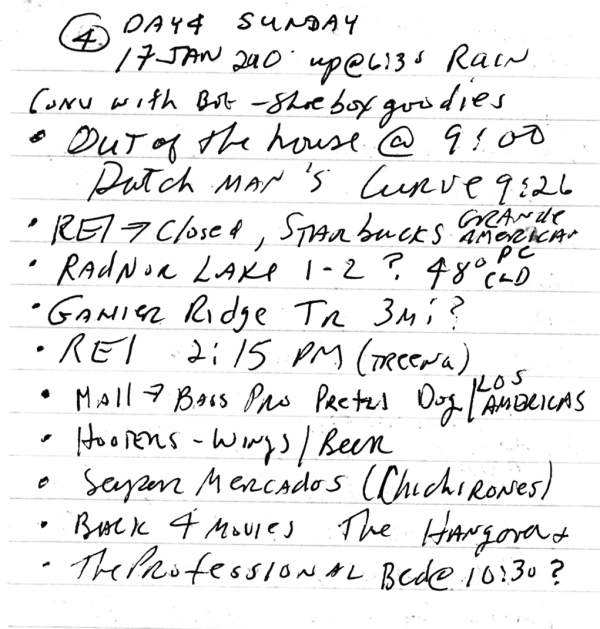 ④ DAY 4 SUNDAY
17 JAN 2010 up@6:30 RAIN
Conv with Bob - Shoebox goodies
• OUT of the house @ 9:00
Dutch MAN'S Curve 9:26
• REI → Closed, STARbucks GRANDE AMERICAN
• RADNOR LAKE 1-2? 48° PC CLD
• GANIER Ridge TR 3mi?
• REI 2:15 PM (TREENA)
• MALL → BASS PRO Pretzel Dog / LOS AMERICAS
• HOOTERS - Wings / BEER
• Super MERCADOS (Chichirones)
• BACK 4 MOVIES The HANGOVER &
• The PROfESSIONAL Bed@ 10:30?